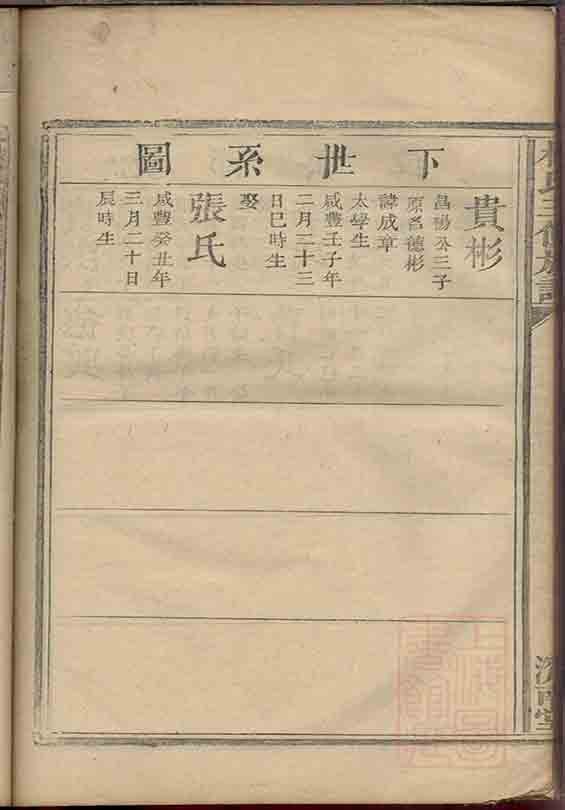 下世系圖
貴彬
昌陽公三子
原名德彬
諱成章
太學生
咸豐壬子年
二月二十三
日巳時生
娶
張氏
咸豐癸丑年
三月二十日
辰時生